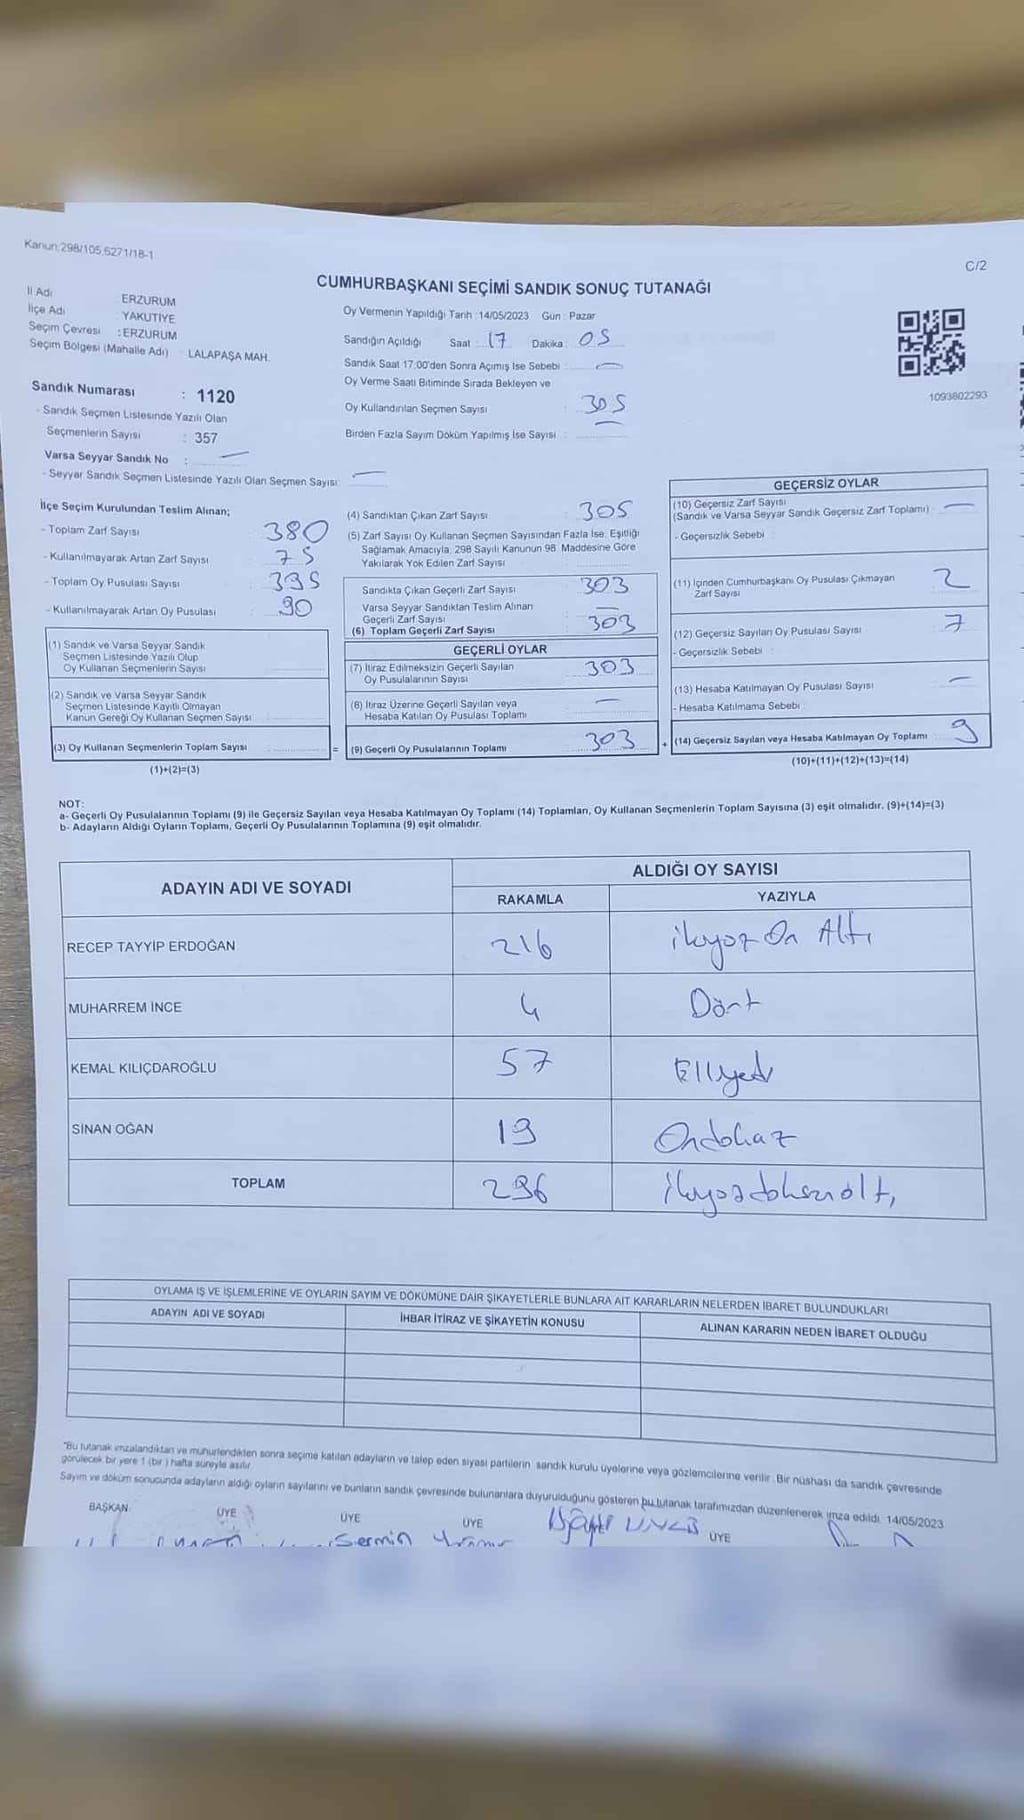 Kanun:298/105,6271/18-1
C/2
CUMHURBAŞKANI SEÇİMİ SANDIK SONUÇ TUTANAĞI
İl Adı : ERZURUM
İlçe Adı : YAKUTİYE
Seçim Çevresi : ERZURUM
Seçim Bölgesi (Mahalle Adı) : LALAPAŞA MAH.
Sandık Numarası : 1120
- Sandık Seçmen Listesinde Yazılı Olan
Seçmenlerin Sayısı : 357
Varsa Seyyar Sandık No : —
- Seyyar Sandık Seçmen Listesinde Yazılı Olan Seçmen Sayısı: —
Oy Vermenin Yapıldığı Tarih :14/05/2023 Gün : Pazar
Sandığın Açıldığı Saat : 17 Dakika : 05
Sandık Saat 17:00'den Sonra Açımış İse Sebebi : —
Oy Verme Saati Bitiminde Sırada Bekleyen ve
Oy Kullandırılan Seçmen Sayısı : 305
Birden Fazla Sayım Döküm Yapılmış İse Sayısı : —
1093802293
İlçe Seçim Kurulundan Teslim Alınan;
- Toplam Zarf Sayısı : 380
- Kullanılmayarak Artan Zarf Sayısı : 75
- Toplam Oy Pusulası Sayısı : 395
- Kullanılmayarak Artan Oy Pusulası : 90
(1) Sandık ve Varsa Seyyar Sandık
Seçmen Listesinde Yazılı Olup
Oy Kullanan Seçmenlerin Sayısı
(2) Sandık ve Varsa Seyyar Sandık
Seçmen Listesinde Kayıtlı Olmayan
Kanun Gereği Oy Kullanan Seçmen Sayısı
(3) Oy Kullanan Seçmenlerin Toplam Sayısı
(1)+(2)=(3)
(4) Sandıktan Çıkan Zarf Sayısı : 305
(5) Zarf Sayısı Oy Kullanan Seçmen Sayısından Fazla İse, Eşitliği
Sağlamak Amacıyla, 298 Sayılı Kanunun 98. Maddesine Göre
Yakılarak Yok Edilen Zarf Sayısı
Sandıkta Çıkan Geçerli Zarf Sayısı : 303
Varsa Seyyar Sandıktan Teslim Alınan
Geçerli Zarf Sayısı : —
(6) Toplam Geçerli Zarf Sayısı : 303
GEÇERLİ OYLAR
(7) İtiraz Edilmeksizin Geçerli Sayılan
Oy Pusulalarının Sayısı : 303
(8) İtiraz Üzerine Geçerli Sayılan veya
Hesaba Katılan Oy Pusulası Toplamı : —
= (9) Geçerli Oy Pusulalarının Toplamı : 303
GEÇERSİZ OYLAR
(10) Geçersiz Zarf Sayısı
(Sandık ve Varsa Seyyar Sandık Geçersiz Zarf Toplamı) : —
- Geçersizlik Sebebi :
(11) İçinden Cumhurbaşkanı Oy Pusulası Çıkmayan
Zarf Sayısı : 2
(12) Geçersiz Sayılan Oy Pusulası Sayısı : 7
- Geçersizlik Sebebi :
(13) Hesaba Katılmayan Oy Pusulası Sayısı : —
- Hesaba Katılmama Sebebi :
+ (14) Geçersiz Sayılan veya Hesaba Katılmayan Oy Toplamı : 9
(10)+(11)+(12)+(13)=(14)
NOT:
a- Geçerli Oy Pusulalarının Toplamı (9) ile Geçersiz Sayılan veya Hesaba Katılmayan Oy Toplamı (14) Toplamları, Oy Kullanan Seçmenlerin Toplam Sayısına (3) eşit olmalıdır. (9)+(14)=(3)
b- Adayların Aldığı Oyların Toplamı, Geçerli Oy Pusulalarının Toplamına (9) eşit olmalıdır.
ADAYIN ADI VE SOYADI ALDIĞI OY SAYISI
RAKAMLA YAZIYLA
RECEP TAYYİP ERDOĞAN 216 ikiyüz On Altı
MUHARREM İNCE 4 Dört
KEMAL KILIÇDAROĞLU 57 Elliyedi
SİNAN OĞAN 19 Ondokuz
TOPLAM 296 ikiyüzdoksanaltı
OYLAMA İŞ VE İŞLEMLERİNE VE OYLARIN SAYIM VE DÖKÜMÜNE DAİR ŞİKAYETLERLE BUNLARA AİT KARARLARIN NELERDEN İBARET BULUNDUKLARI
ADAYIN ADI VE SOYADI İHBAR İTİRAZ VE ŞİKAYETİN KONUSU ALINAN KARARIN NEDEN İBARET OLDUĞU
"Bu tutanak imzalandıktan ve mühürlendikten sonra seçime katılan adayların ve talep eden siyasi partilerin sandık kurulu üyelerine veya gözlemcilerine verilir. Bir nüshası da sandık çevresinde
görülecek bir yere 1 (bir) hafta süreyle asılır.
Sayım ve döküm sonucunda adayların aldığı oyların sayılarını ve bunların sandık çevresinde bulunanlara duyurulduğunu gösteren bu tutanak tarafımızdan düzenlenerek imza edildi. 14/05/2023
BAŞKAN ÜYE ÜYE ÜYE ÜYE
Sermin